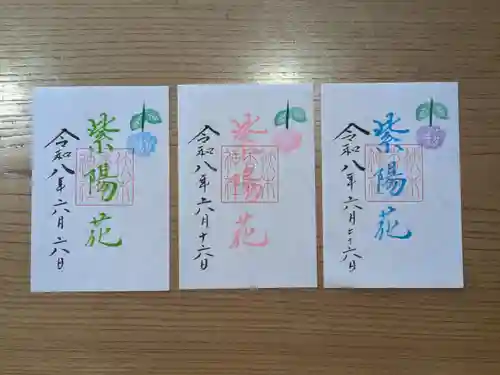 紫陽花
令和八年六月六日
紫陽花
令和八年六月十六日
紫陽花
令和八年六月二十六日